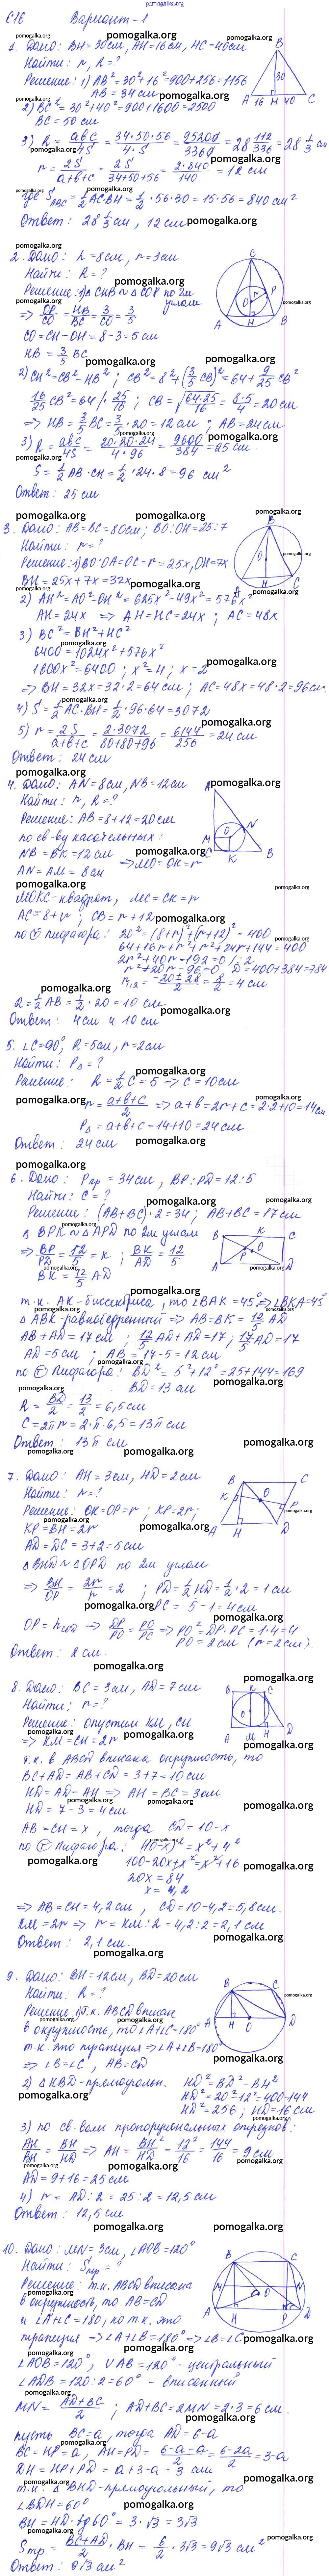 С16 Вариант - 1
1. Дано: BH=30см, AH=16см, HC=40см
Найти: r, R=?
Решение: 1) AB²=30²+16²=900+256=1156
AB=34см
2) BC²=30²+40²=900+1600=2500
BC=50 см
3) R = abc/4S = 34·50·56/4·S = 95200/3360 = 28 112/336 = 28 1/3 см
r = 2S/a+b+c = 2S/34+50+56 = 2·840/140 = 12 см
где S ABC = 1/2 AC·BH = 1/2 · 56·30 = 15·56 = 840 см²
Ответ: 28 1/3 см, 12см
2. Дано: h=8см, r=3см
Найти: R=?
Решение: 1) △CHB ~ △COP по 2м углам
=> OP/CO = HB/BC = 3/CO = 3/5
CO=CH-OH=8-3=5см
HB = 3/5 BC
2) CH²=CB²-HB²; CB²=8²+(3/5 CB)²=64+9/25 CB²
16/25 CB²=64 | · 25/16; CB=√64·25/16 = 8·5/4 = 20см
=> HB=3/5 BC=3/5·20=12см; AB=24см
3) R = abc/4S = 20·20·24/4·96 = 9600/384 = 25 см
S=1/2 AB·CH=1/2·24·8=96 см²
Ответ: 25 см
3. Дано: AB=BC=80см; BO:OH=25:7
Найти: r=?
Решение: 1) BO=OA=OC=r=25x, OH=7x
BH=25x+7x=32x
2) AH²=AO²-OH²=625x²-49x²=576x²
AH=24x => AH=HC=24x; AC=48x
3) BC²=BH²+HC²
6400=1024x²+576x²
1600x²=6400; x²=4; x=2
=> BH=32x=32·2=64см; AC=48x=48·2=96см
4) S=1/2 AC·BH=1/2·96·64=3072
5) r = 2S/a+b+c = 2·3072/80+80+96 = 6144/256 = 24 см
Ответ: 24 см
4. Дано: AN=8см, NB=12см
Найти: r, R=?
Решение: AB=8+12=20см
по св-ву касательных:
NB=BK=12см
AN=AM=8см => MO=OK=r
MOKC-квадрат, MC=CK=r
AC=8+r; CB=r+12
по т Пифагора: 20²=(8+r)²+(r+12)²=400
64+16r+r²+r²+24r+144=400
2r²+40r-192=0 /:2
r²+20r-96=0, D=400+384=784
r1,2 = -20±28/2 = 8/2 = 4см
R=1/2 AB=1/2·20=10 см
Ответ: 4см и 10 см
5. ∠C=90°; R=5см, r=2см
Найти: P△=?
Решение: R=1/2 C=5 => C=10см
r = a+b+c/2 => a+b=2r+c=2·2+10=14см
P△=a+b+c=14+10=24см
Ответ: 24 см
6. Дано: Pпр=34см, BP:PD=12:5
Найти: C=?
Решение: (AB+BC)·2=34; AB+BC=17см
△ BPK ~ △ APD по 2м углам
=> BP/PD = 12/5 = k; BK/AD = 12/5
BK = 12/5 AD
т.к. AK-биссектриса, то ∠BAK=45° => ∠BKA=45°
△ ABK-равнобедренный => AB=BK=12/5 AD
AB+AD=17см; 12/5 AD+AD=17; 17/5 AD=17
AD=5см; AB=17-5=12см
по т Пифагора: BD²=5²+12²=25+144=169
BD=13см
R = BD/2 = 13/2 = 6,5см
C=2πr=2·π·6,5=13π см
Ответ: 13π см
7. Дано: AH=3см, HD=2см
Найти: r=?
Решение: OK=OP=r; KP=2r;
KP=BH=2r
AD=DC=3+2=5см
△BHD ~ △OPD по 2м углам
=> BH/OP = 2r/r = 2; PD=1/2 HD=1/2·2=1см
PC=5-1=4см
OP=h => DP/PO = PO/PC => PO²=DP·PC=1·4=4
PO=2см (r=2см)
Ответ: 2 см.
8. Дано: BC=3см, AD=7см
Найти: r=?
Решение: опустим KM, CH
=> KM=CH=2r
т.к. в ABCD вписана окружность, то
BC+AD=AB+CD=3+7=10см
HD=AD-AH => AH=BC=3см
HD=7-3=4см
AB=CH=x, тогда CD=10-x
по т Пифагора: (10-x)²=x²+4²
100-20x+x²=x²+16
20x=84
x=4,2
=> AB=CH=4,2см, CD=10-4,2=5,8см.
KM=2r => r=KM:2=4,2:2=2,1см
Ответ: 2,1см.
9. Дано: BH=12см, BD=20см
Найти: R=?
Решение: 1) т.к. ABCD вписан
в окружность, то ∠A+∠C=180°
т.к. это трапеция => ∠A+∠B=180°
=> ∠B=∠C, AB=CD
2) △HBD-прямоугольн. HD²=BD²-BH²
HD²=20²-12²=400-144
HD²=256; HD=16см
3) по св-вам пропорциональных отрезков:
AH/BH = BH/HD => AH = BH²/HD = 12²/16 = 144/16 = 9см
AD=9+16=25см
4) r=AD:2=25:2=12,5см
Ответ: 12,5см
10. Дано: MN=3см, ∠AOB=120°
Найти: Sтр=?
Решение: т.к. ABCD вписана
в окружность, то AB=CD
и ∠A+∠C=180, но т.к. это
трапеция => ∠A+∠B=180° => ∠B=∠C
∠AOB=120°, ∪AB=120°-центральный
∠ADB=120:2=60°-вписанный
MN = AD+BC/2; AD+BC=2MN=2·3=6см.
пусть BC=a, тогда AD=6-a
BC=HP=a, AH=PD= 6-a-a/2 = 6-2a/2 = 3-a
DH=HP+PD=a+3-a=3 см
т.к. △BHD-прямоугольный, то
∠BDH=60°
BH=HD·tg60°=3·√3=3√3
Sтр = BC+AD/2 · BH = 6/2 · 3√3 = 9√3 см²
Ответ: 9√3 см²
pomogalka.org